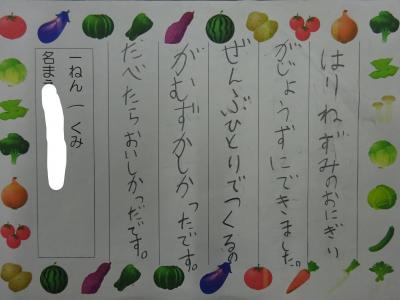 はりねずみのおにぎり
がじょうずにできました。
ぜんぶひとりでつくるの
がむずかしかったです。
たべたらおいしかったです。
一ねん 一くみ
名まえ